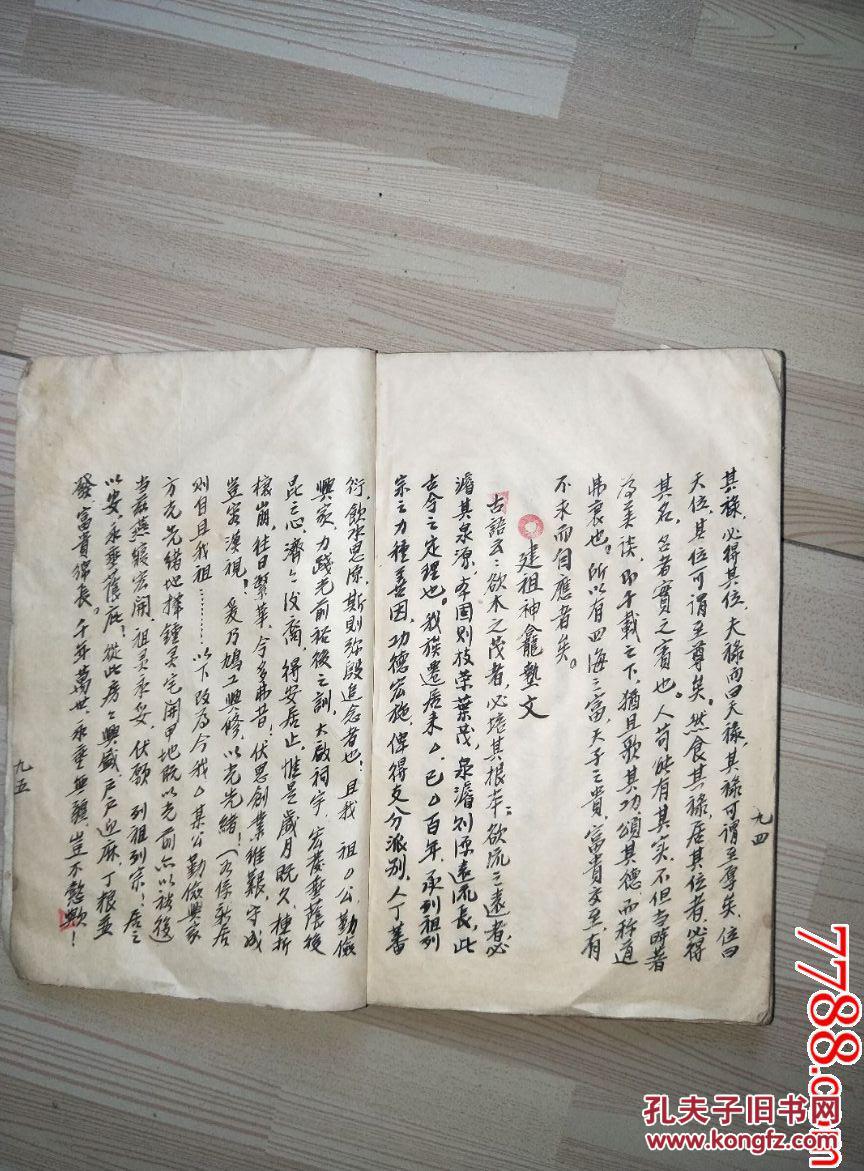 其祿，必得其位，夫祿而曰天祿，其祿可謂至尊矣，位曰
天位，其位可謂至尊矣。然食其祿，居其位者，必得
其名，名者實之賓也。人苟能有其实，不但当時著
為美談，即千載之下，猶且歌其功，頌其德，而称道
弗衰也。所以有四海之富，天子之貴，富貴交至，有
不求而自應者矣。
建祖神龕墊文
古語云：欲木之茂者，必培其根本；欲流之遠者，必
濬其泉源，本固则枝荣葉茂，泉濬则源遠流長，此
古今之定理也。我族遷居来△，已△百年，承列祖列
宗之力種善因，功德宏施，俾得支分派别，人丁蕃
九四
衍，飲水思源，斯則弥殷追念者也！且我 祖△公勤儉
興家，力踐光前裕後之訓，大啟祠宇，宏發垂蔭後
昆之心，濟之後裔，得安居止，惟是歲月既久，棟折
榱崩，往日繁華，今多弗昔！伏思創業維艱，守成
豈容漠視！爰乃鳩工興修，以光先緒！（如係新居
則自且我祖………以下改為今我△某公勤儉興家
方光先緒地择鍾灵宅開甲地既以光前亦以裕後）
当兹燕寢宏開，祖灵永妥，伏願 列祖列宗！居之
以安，永垂蔭庇！從此房之興盛，戶戶迎庥，丁根並
發，富貴綿長。千年萬世，永垂無疆，豈不懿歟！
九五
7788.com
孔夫子旧书网
www.kongfz.com